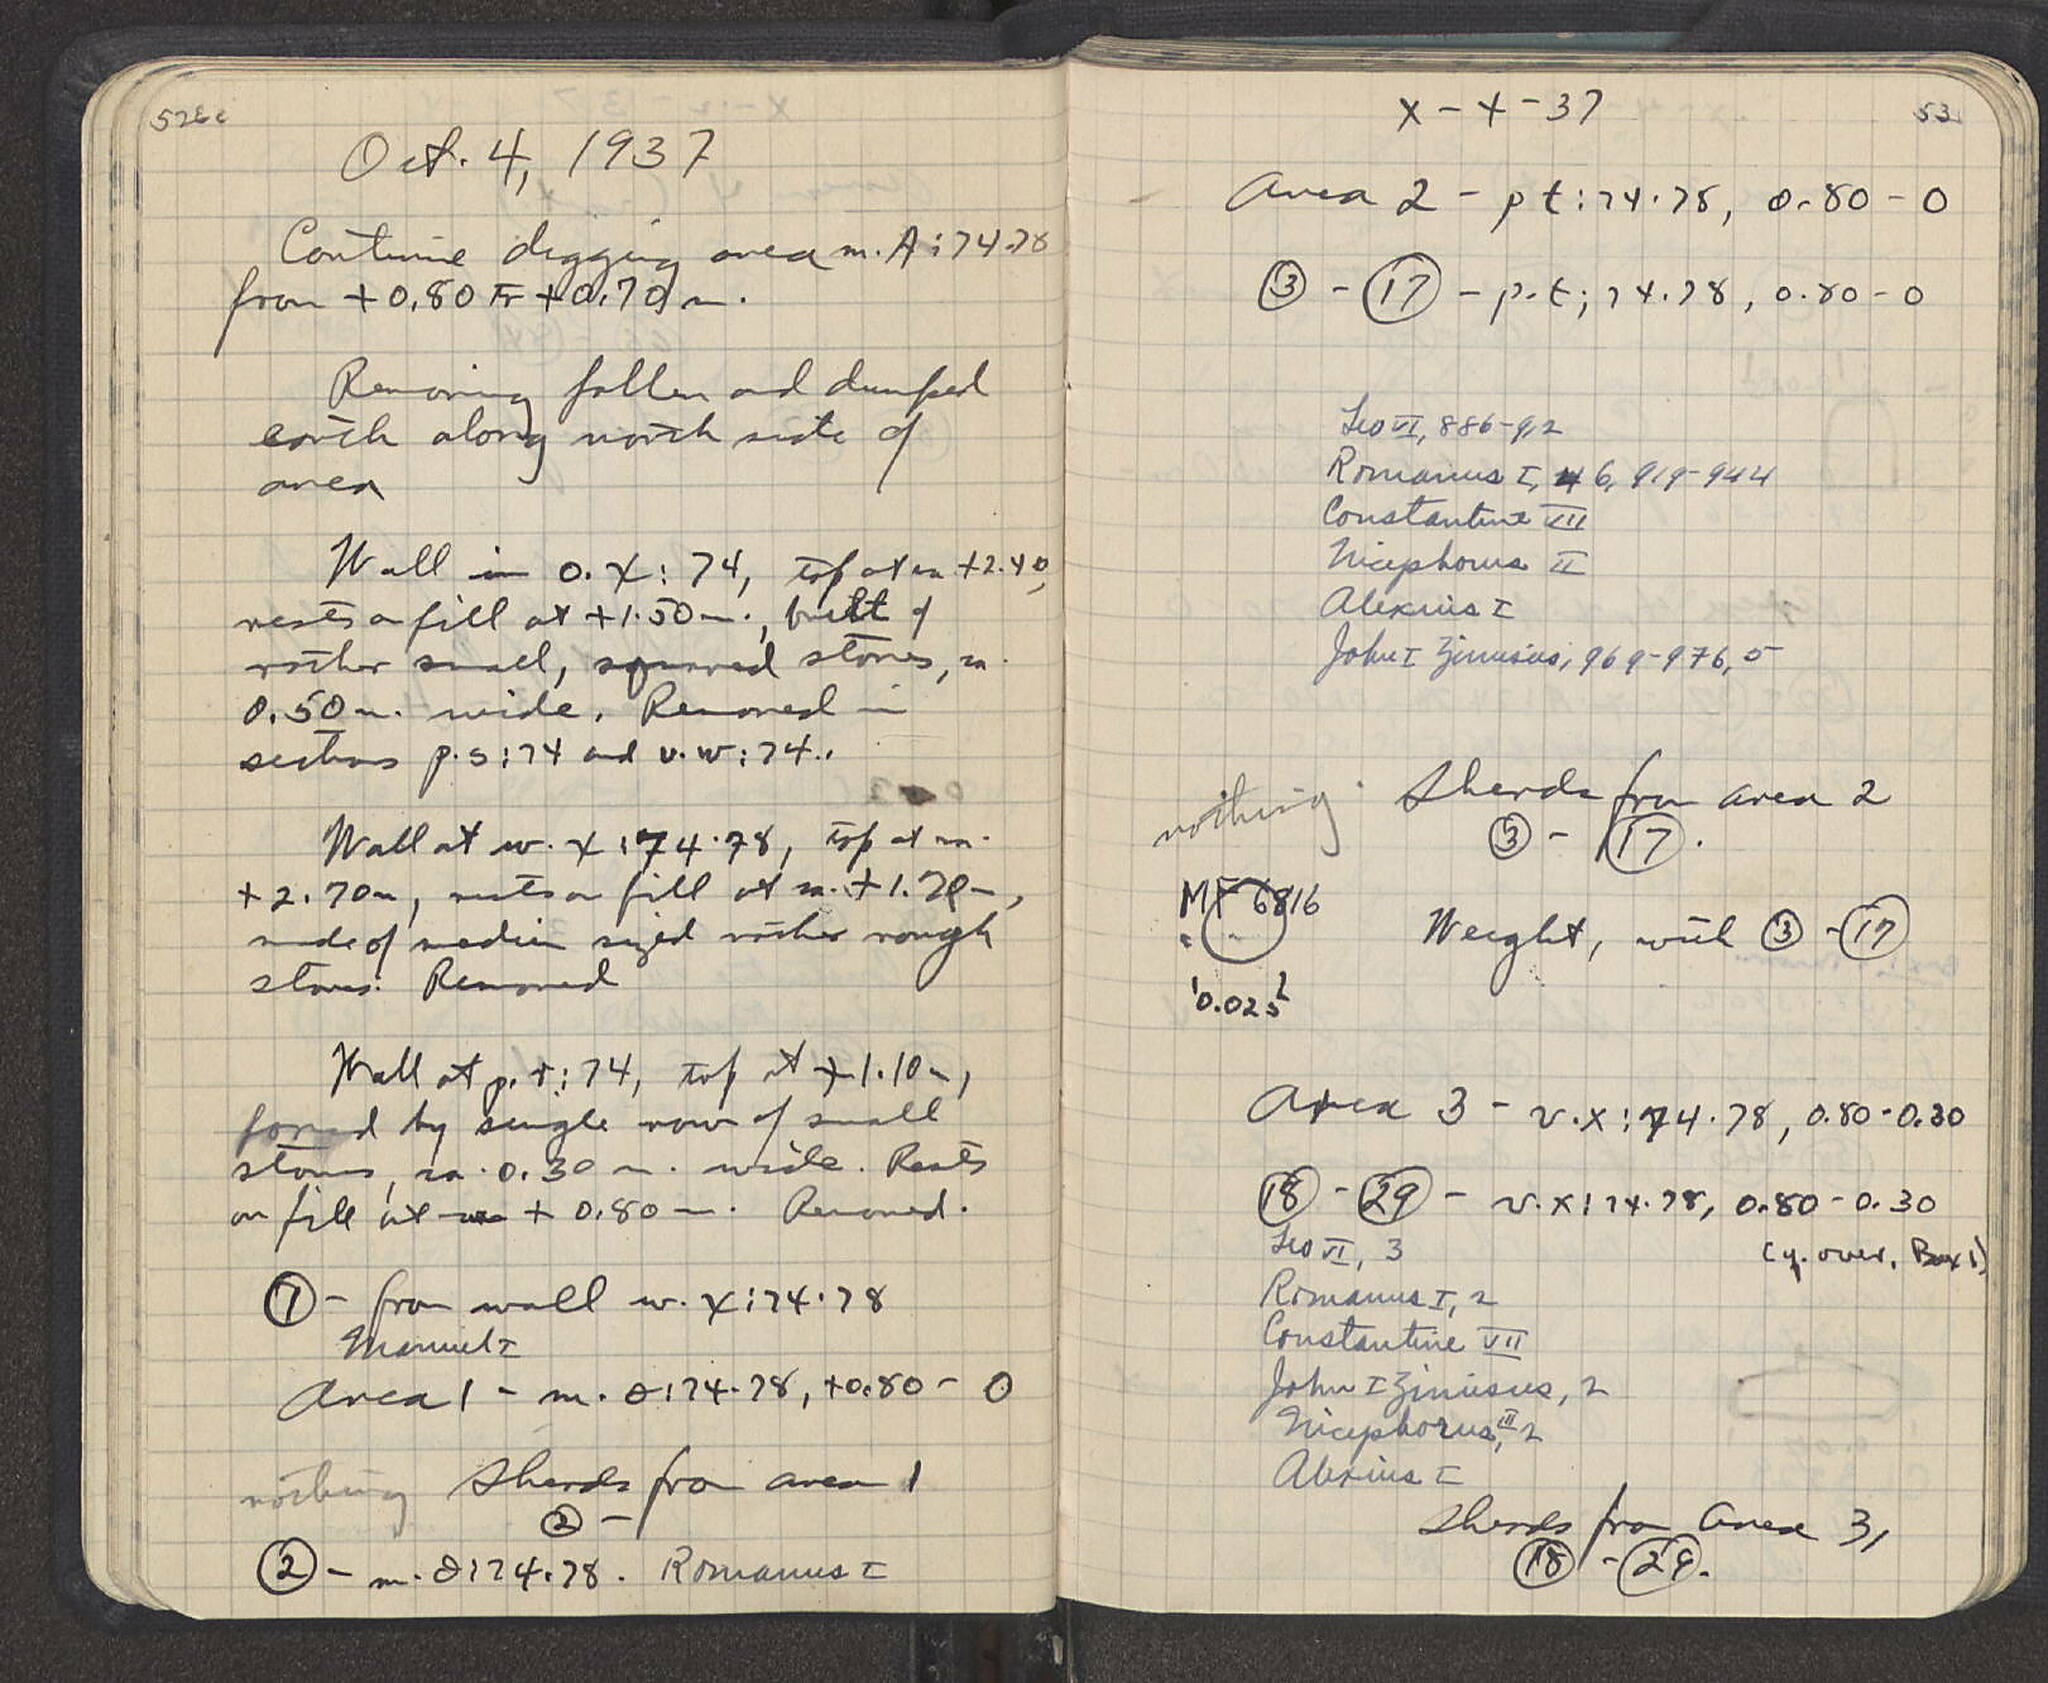 Oct. 4, 1937
Continue digging area m. A:74.78
from +0.80 to +0.70 m.
Removing fallen and dumped
earth along north side of
area
Wall in o.x:74, top at ca +2.40,
rests on fill at +1.50 m., built of
rather small, squared stones, ca.
0.50 m. wide. Removed in
sections p.s:74 and v.w:74.
Wall at w.x:74.78, top at ca.
+2.70 m, rests on fill at ca. +1.70 m,
made of medium sized rather rough
stones. Removed
Wall at p.t:74, top at +1.10 m,
formed by single row of small
stones, ca. 0.30 m. wide. Rests
on fill at + 0.80 m. Removed.
① - from wall w.x:74.78
Manuel I
Area 1 - m.o:74.78, +0.80 - 0
nothing Sherds from area 1
② -
② - m.o:74.78. Romanus I
X-4-37
53
Area 2 - p t:74.78, 0.80-0
③ - ⑰ - p.t:74.78, 0.80-0
Leo VI, 886-912
Romanus I, 6, 919-944
Constantine VII
Nicephorus II
Alexius I
John I Zimisius, 969-976, 5
nothing Sherds from area 2
③ - ⑰.
MF 6816
Weight, with ③ - ⑰
0.025
Area 3 - v.x:74.78, 0.80-0.30
⑱ - ㉙ - v.x:74.78, 0.80-0.30
Leo VI, 3
over, Box 1)
Romanus I, 2
Constantine VII
John I Zimisius, 2
Nicephorus III, 2
Alexius I
Sherds from Area 3,
⑱ - ㉙.